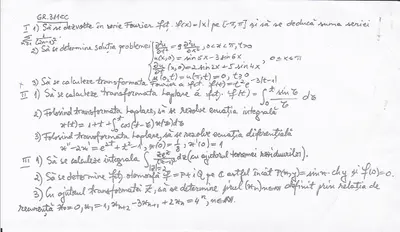 GR. 311CC
I 1) Să se dezvolte în serie Fourier fct. f(x)=|x| pe [-π,π] și să se deducă suma seriei
∑ 1/(2n-1)²
n=1
2) Să se determine soluția problemei { ∂²u/∂t² = 9 ∂²u/∂x², 0<x<π, t>0
u(x,0) = sin 5x - 3 sin 6x
∂u/∂t (x,0) = 2 sin 2x + 5 sin 4x, 0≤x≤π
u(0,t) = u(π,t) = 0, t≥0
3) Să se calculeze transformata Fourier a fct. f(t) =
II 1) Să se calculeze transformata Laplace a fct. f(t) = ∫₀ᵗ sin τ/τ dτ
2) Folosind transformata Laplace, să se rezolve ecuația integrală
x(t) = 1 + t + ∫₀ᵗ cos(t-τ) x(τ) dτ
3) Folosind transformata Laplace, să se rezolve ecuația diferențială
x'' - 2x' = e²ᵗ + t² - 1, x(0) = , x'(0) = 1
III 1) Să se calculeze integrala dz (cu ajutorul teoremei reziduurilor).
|z|=2
2) Să se determine fct. olomorfă f = P + iQ pe C astfel încât P(x,y) = sin x · ch y și f(0) = 0.
3) Cu ajutorul transformatei Z, să se determine șirul (xₙ) n∈N definit prin relația de
recurență x₀ = 0, x₁ = 1, xₙ₊₂ - 3xₙ₊₁ + 2xₙ = 4ⁿ, n∈N.